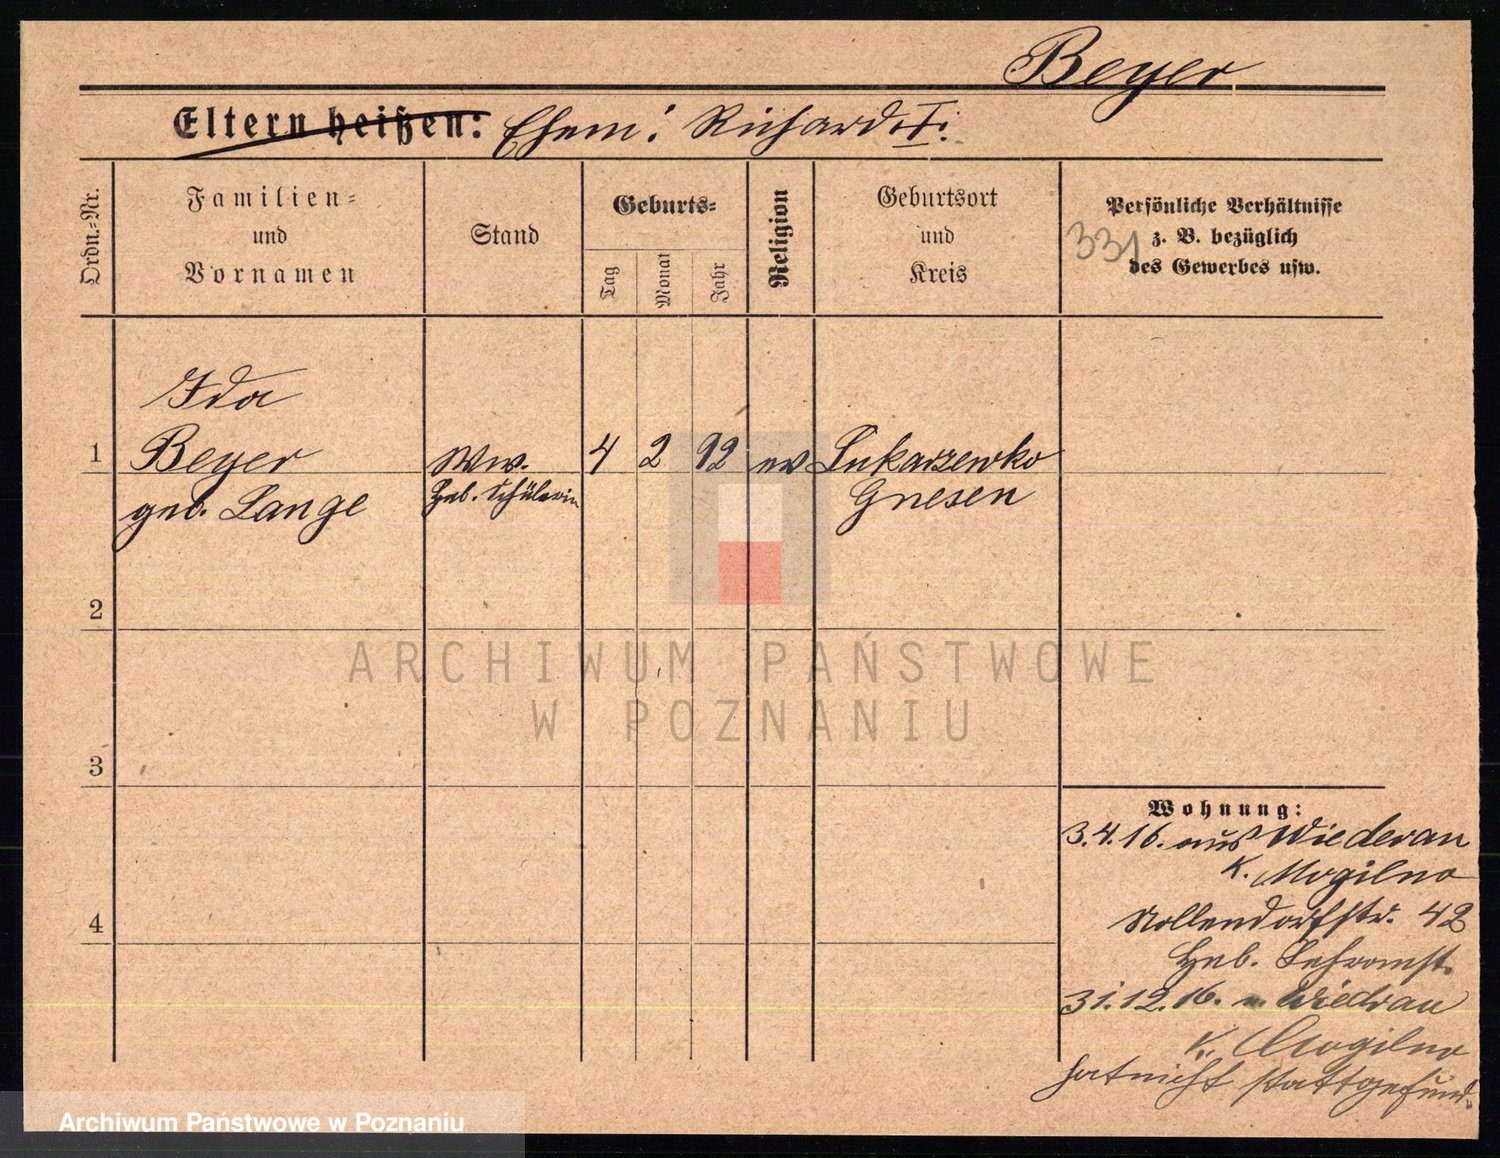 Beyer
Eltern heißen: Ehem: Richard I.
Ordn.-Nr.
Familien-
und
Vornamen
Stand
Geburts-
Tag
Monat
Jahr
Religion
Geburtsort
und
Kreis
Persönliche Verhältnisse
z. B. bezüglich
des Gewerbes usw.
331
Ida
1 Beyer Ww. 4 2 92 ev Lukarzewko
geb. Lange Heb. Schülerin Gnesen
2
3
4
ARCHIWUM PAŃSTWOWE
W POZNANIU
Wohnung:
3.4.16. aus Wiederau
K. Mogilno
Nollendorfstr. 42
Heb. Lehranst.
31.12.16. n. Wiedrau
K. Mogilno
hat nicht stattgefund.
Archiwum Państwowe w Poznaniu